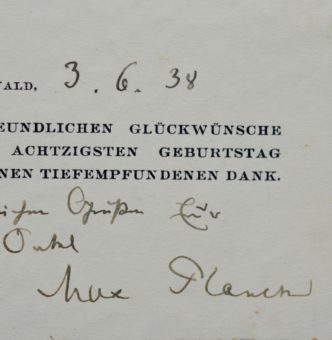 WALD, 3.6.38
EUNDLICHEN GLÜCKWÜNSCHE
ACHTZIGSTEN GEBURTSTAG
NEN TIEFEMPFUNDENEN DANK.
Grüßen
Onkel
Max Planck